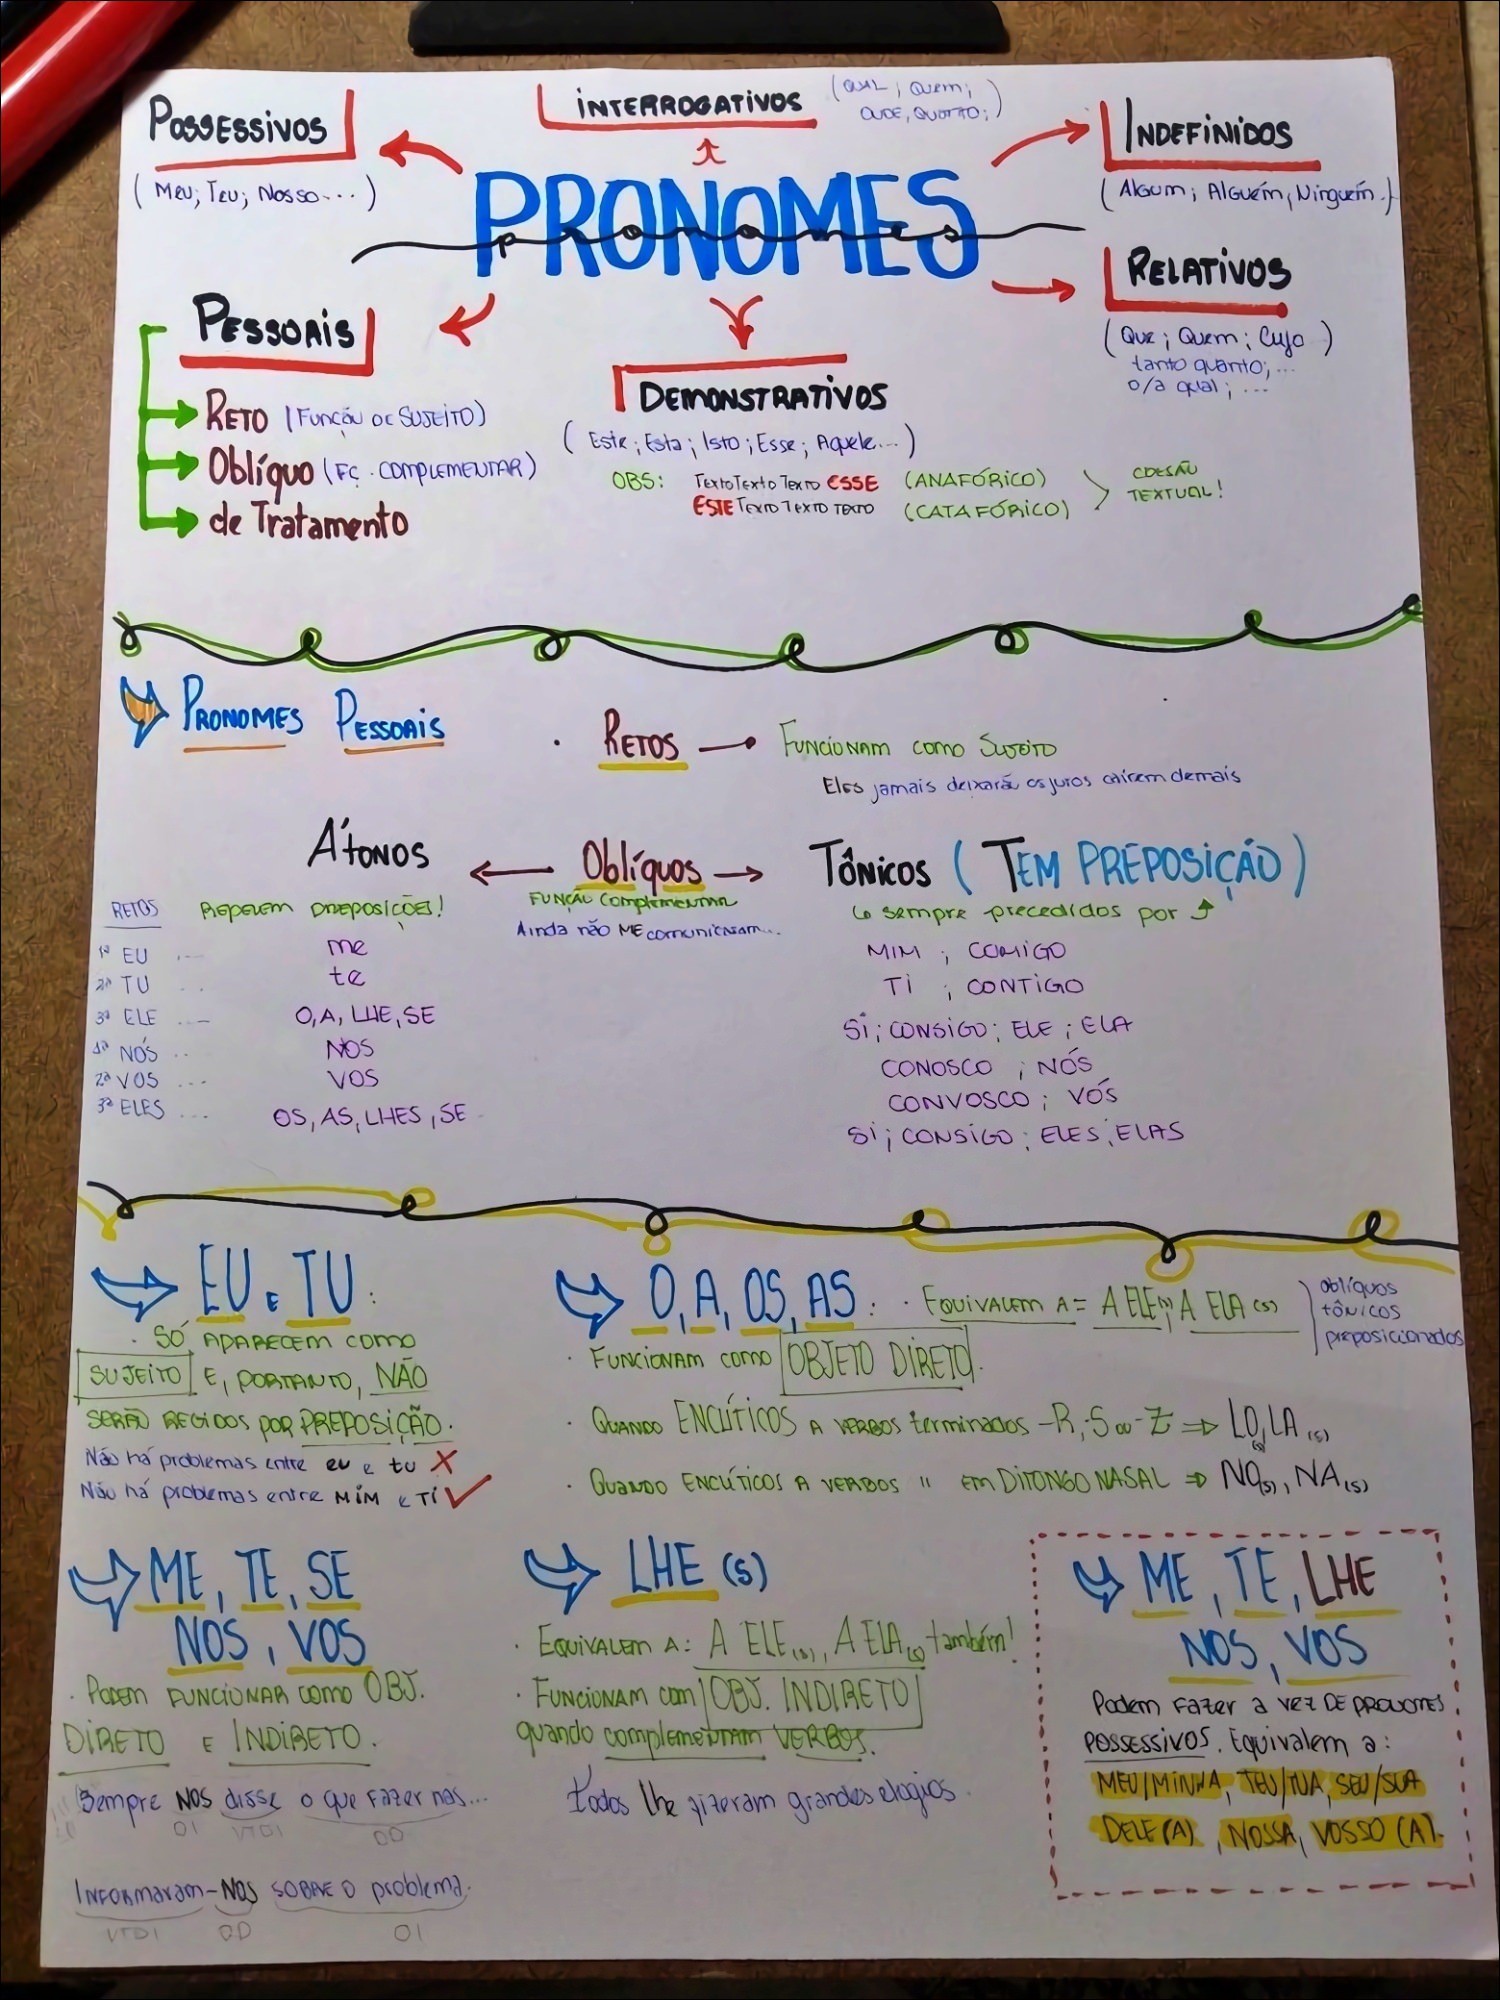 POSSESSIVOS
(MEU; TEU; NOSSO...)
INTERROGATIVOS
(QUAL; QUEM;
INDEFINIDOS
(ALGUM; ALGUÉM, NINGUÉM.)
PRONOMES
PRONOMES
RELATIVOS
(QUE; QUEM; CUJO)
tanto quanto;...
o/a qual; ...
PESSOAIS
RETO (FUNÇÃO DE SUJEITO)
OBLÍQUO (FÇ. COMPLEMENTAR)
de Tratamento
DEMONSTRATIVOS
(Este; Esta; Isto; Esse; Aquele...)
OBS: TEXTO TEXTO TEXTO ESSE (ANAFÓRICO)
ESTE TEXTO TEXTO TEXTO (CATAFÓRICO)
COESÃO
TEXTUAL!
PRONOMES PESSOAIS
· RETOS → FUNCIONAM COMO SUJEITO
Eles jamais deixarão os juros caírem demais
ÁTONOS ← OBLÍQUOS → TÔNICOS (TEM PREPOSIÇÃO)
RETOS REPELEM PREPOSIÇÕES! FUNÇÃO COMPLEMENTAR sempre precedidos por
Ainda não ME comunicaram...
1ª EU ... me MIM ; COMIGO
2ª TU .. te TI ; CONTIGO
3ª ELE ... O, A, LHE, SE SI; CONSIGO; ELE; ELA
1ª NÓS .. NOS CONOSCO ; NÓS
2ª VOS ... VOS CONVOSCO ; VÓS
3ª ELES ... OS, AS, LHES, SE SI; CONSIGO; ELES; ELAS
EU E TU:
· SÓ APARECEM COMO
SUJEITO E, PORTANTO, NÃO
SERÃO REGIDOS POR PREPOSIÇÃO.
Não há problemas entre eu e tu X
Não há problemas entre MIM e TI ✓
O, A, OS, AS: · EQUIVALEM A = A ELE(S), A ELA(S)
oblíquos
tônicos
preposicionados
· FUNCIONAM COMO OBJETO DIRETO.
· QUANDO ENCLÍTICOS A VERBOS terminados -R, S ou -Z ⇒ LO(S), LA(S)
· QUANDO ENCLÍTICOS A VERBOS " EM DITONGO NASAL ⇒ NO(S), NA(S)
ME, TE, SE
NOS, VOS
· PODEM FUNCIONAR COMO OBJ.
DIRETO E INDIRETO.
Sempre NOS disse o que fazer nas...
OI VTDI OD
INFORMARAM-NOS SOBRE O problema.
VTDI OD OI
LHE (S)
· EQUIVALEM A: A ELE(S), A ELA(S) também!
· FUNCIONAM com OBJ. INDIRETO
quando complementam VERBOS.
todos lhe fizeram grandes elogios.
ME, TE, LHE
NOS, VOS
Podem FAZER A VEZ DE PRONOMES
POSSESSIVOS. Equivalem a:
MEU/MINHA, TEU/TUA, SEU/SUA
DELE(A), NOSSA, VOSSO(A).